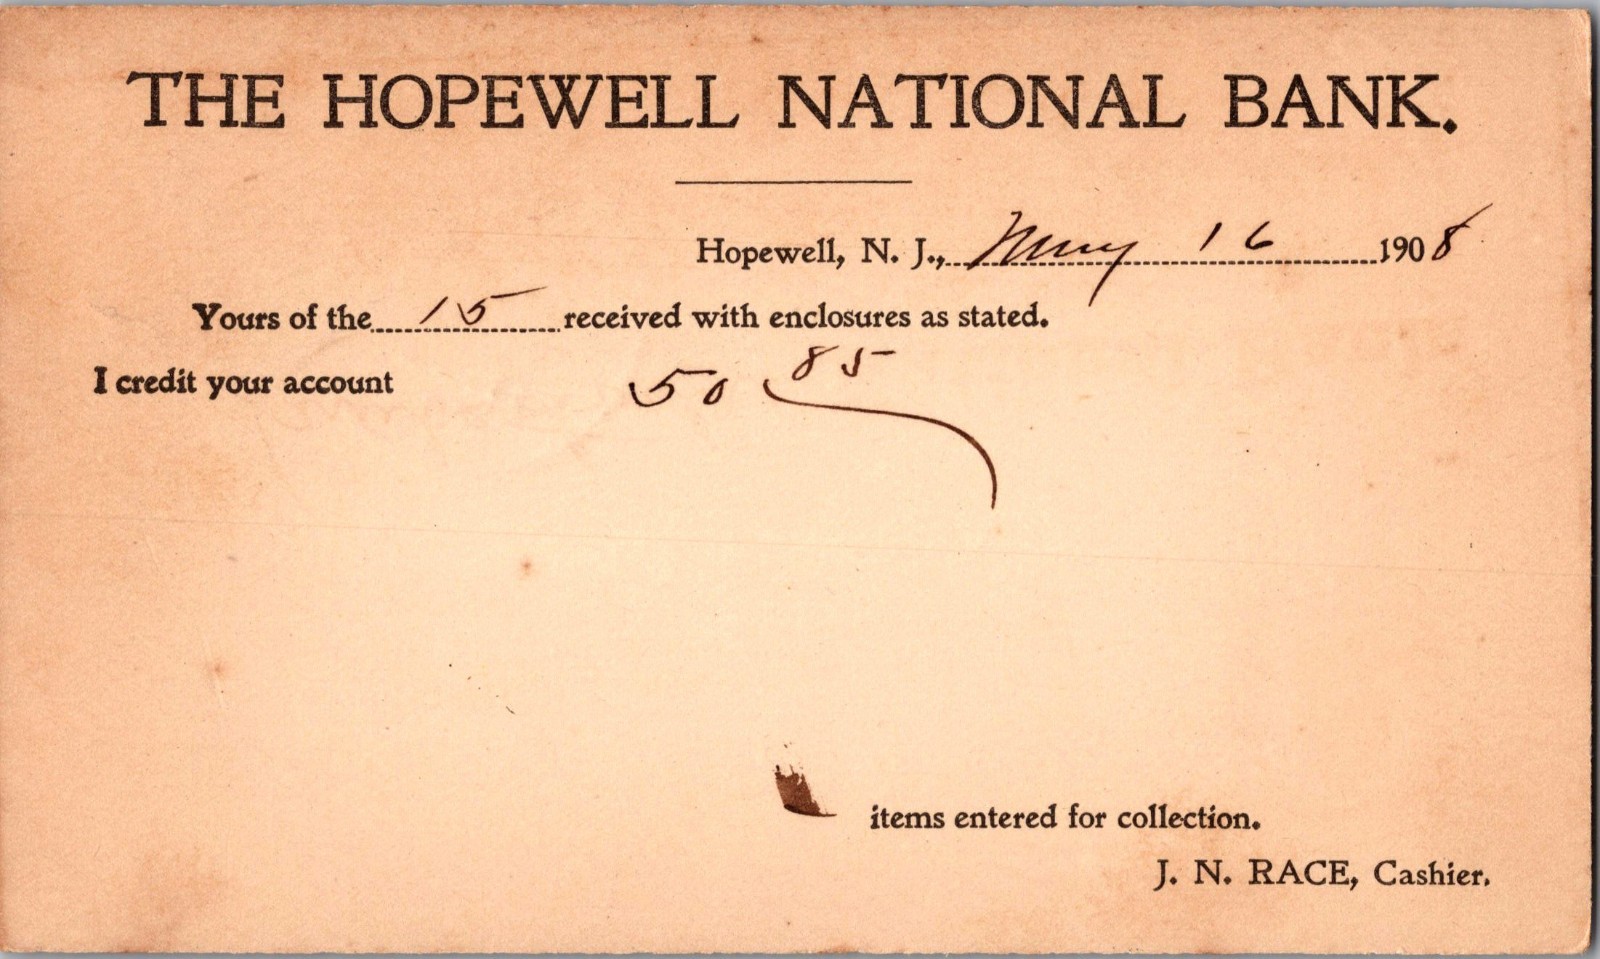 THE HOPEWELL NATIONAL BANK.
Hopewell, N. J., May 16 1908
Yours of the 15 received with enclosures as stated.
I credit your account 50 85
items entered for collection.
J. N. RACE, Cashier.